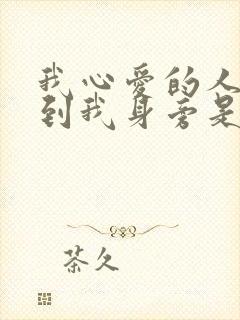 我心爱的人
到我身旁是
茶久